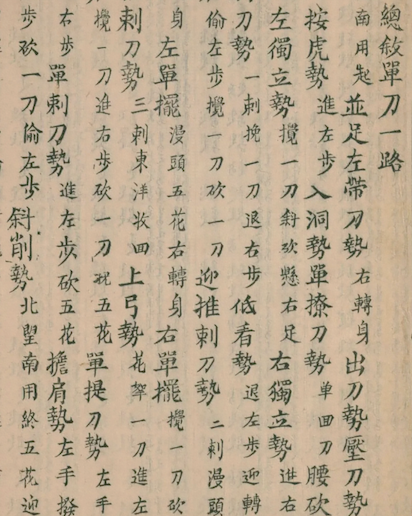 總敘單刀一路
南用起並足左帶刀勢右轉身出刀勢壓刀勢
按虎勢進左步入洞勢單撩刀勢單回刀腰砍
左獨立勢攪一刀斜砍懸右足右獨立勢進右
刀勢一刺挽一刀退右步低看勢退左步迎轉
偷左步攪一刀砍一刀迎推刺刀勢二刺漫頭
身左單擺漫頭五花右轉身右單擺攪一刀砍
刺刀勢三刺東洋收四上弓勢花一刀進左
攪一刀進右步砍一刀五花單提刀勢左手
右步單刺刀勢進左步砍五花擔肩勢左手撥
步砍一刀偷左步斜削勢北朢南用終五花迎